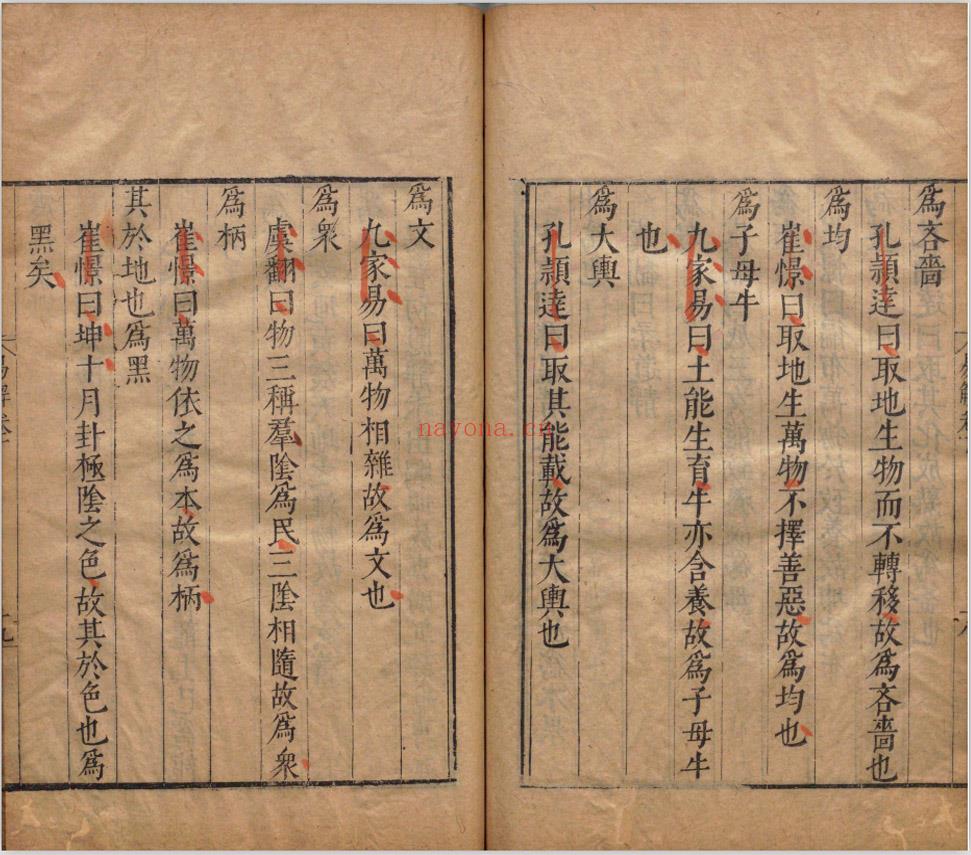 爲吝嗇
孔頴逹曰取地生物而不轉移故爲吝嗇也
爲均
崔憬曰取地生萬物不擇善惡故爲均也
爲子母牛
九家易曰土能生育牛亦含養故爲子母牛
也
爲大輿
孔頴逹曰取其能載故爲大輿也
爲文
九家易曰萬物相雜故爲文也
爲衆
虞翻曰物三稱羣陰爲民三陰相隨故爲衆
爲柄
崔憬曰萬物依之爲本故爲柄
其於地也爲黑
崔憬曰坤十月卦極陰之色故其於色也爲
黑矣
nayona.cn